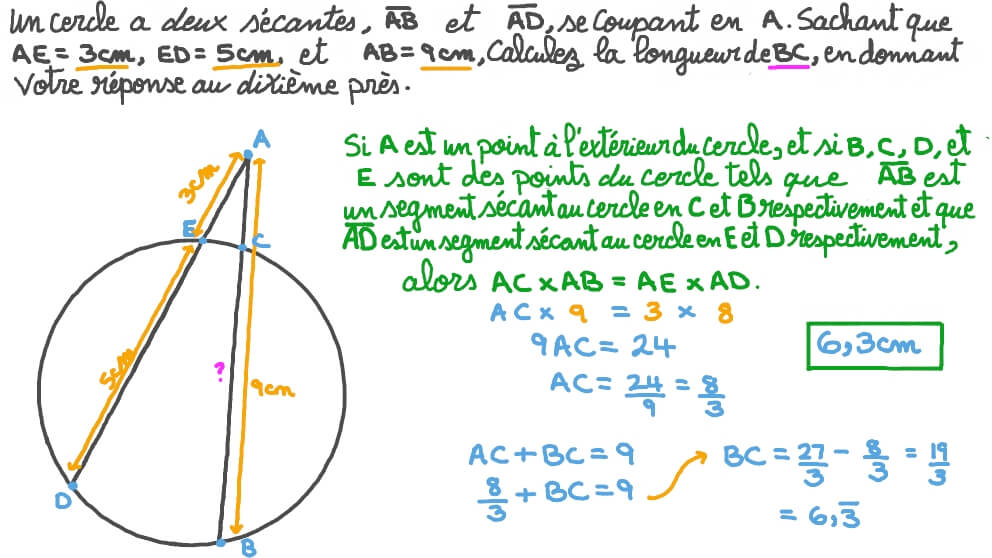 Un cercle a deux sécantes, A̅B̅ et A̅D̅, se coupant en A. Sachant que
AE = 3cm, ED = 5cm, et AB = 9cm, Calculez la longueur de BC, en donnant
Votre réponse au dixième près.
A
3cm
E
C
5cm
?
9cm
D
B
Si A est un point à l'extérieur du cercle, et si B, C, D, et
E sont des points du cercle tels que A̅B̅ est
un segment sécant au cercle en C et B respectivement et que
A̅D̅ est un segment sécant au cercle en E et D respectivement,
alors AC × AB = AE × AD.
AC × 9 = 3 × 8
9AC = 24
AC = 24/9 = 8/3
6,3cm
AC + BC = 9
8/3 + BC = 9
BC = 27/3 - 8/3 = 19/3
= 6,3̅